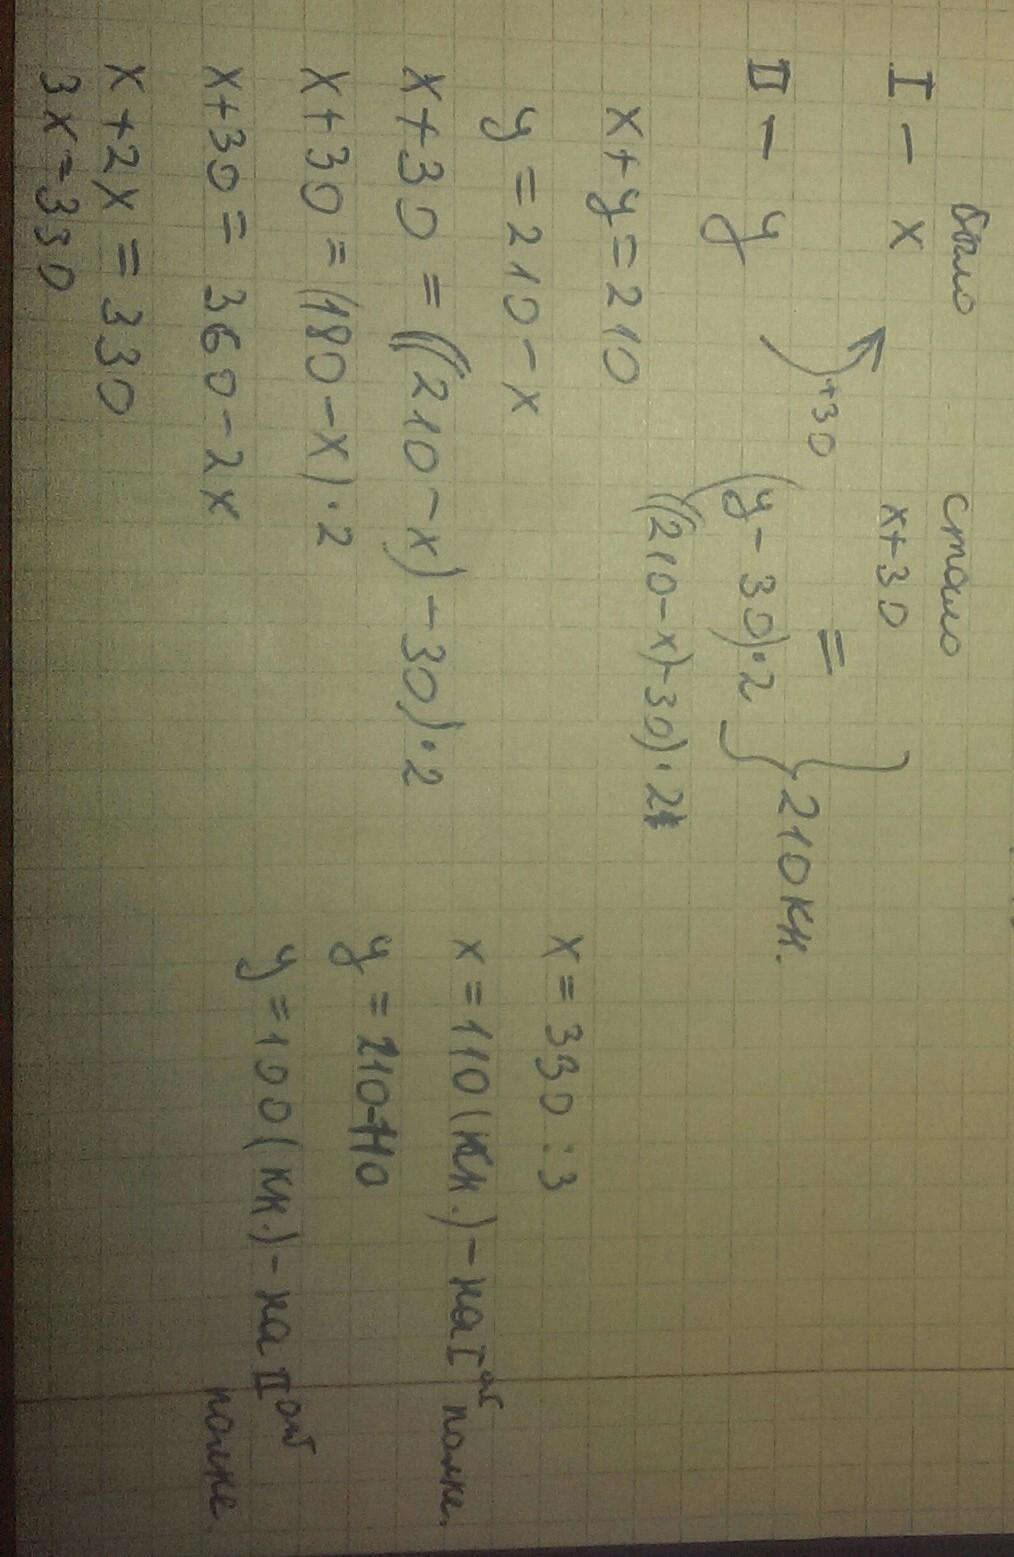 было стало
I - x x+30
+30 =
II - y (y - 30)·2 } 210 кн.
((210-x)-30)·2
x+y=210
y = 210 - x
x+30 = ((210-x) - 30)·2
x+30 = (180-x)·2
x+30 = 360-2x
x+2x = 330
3x=330
x = 330 : 3
x = 110 (кн.) - на I ой полке.
y = 210-110
y = 100 (кн.) - на II ой
полке.